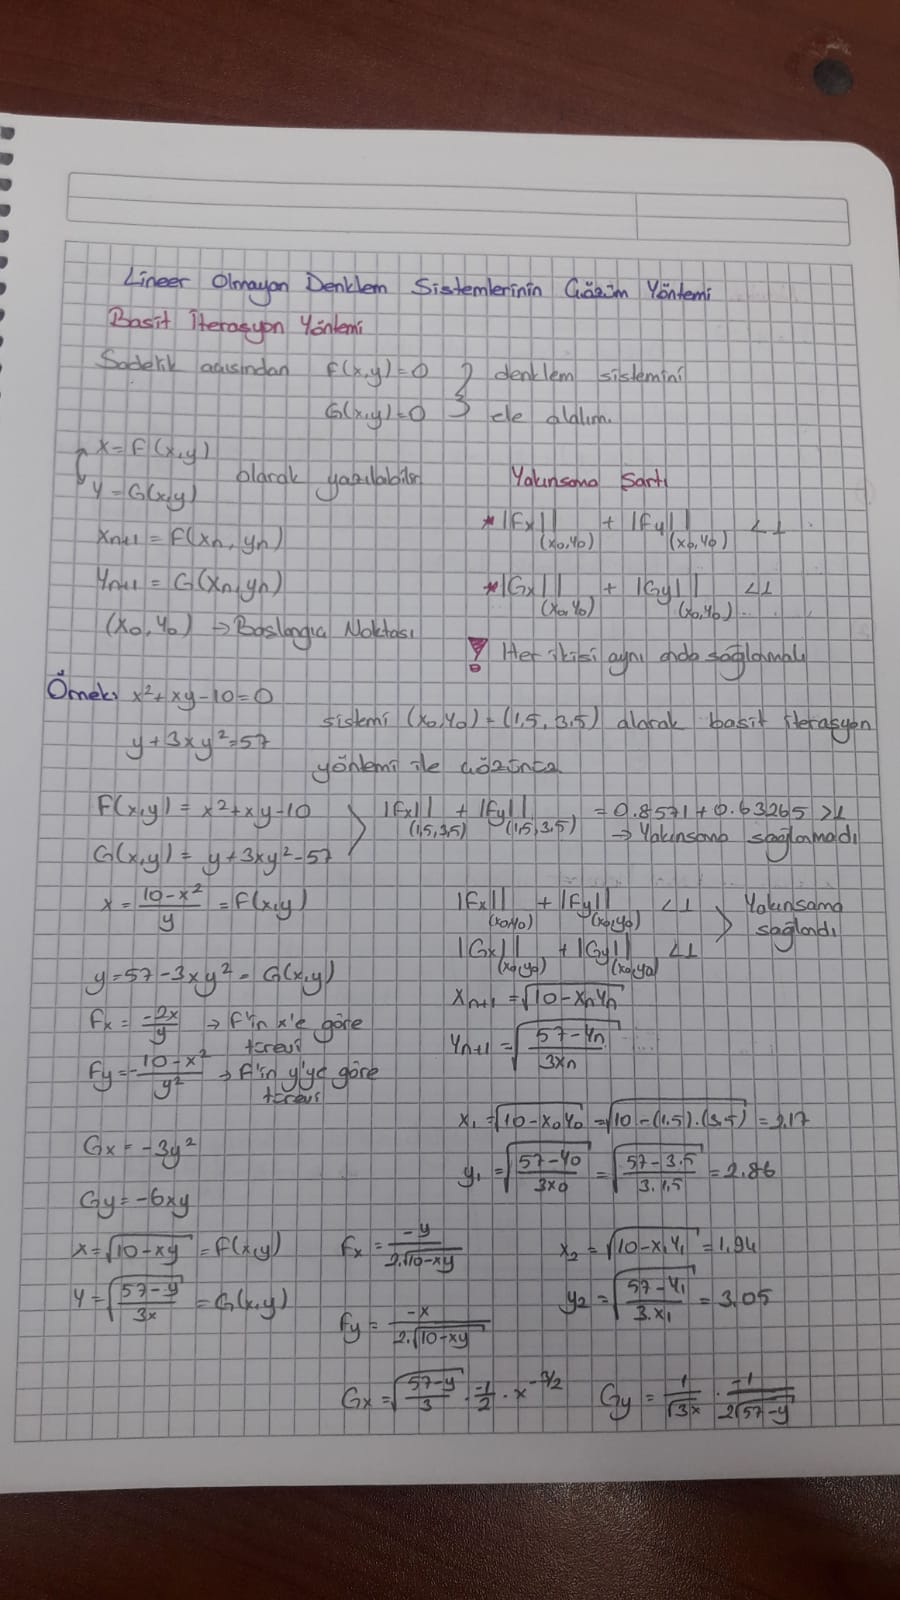 Lineer Olmayan Denklem Sistemlerinin Çözüm Yöntemi
Basit İterasyon Yöntemi
Sadelik açısından F(x,y)=0 } denklem sistemini
G(x,y)=0 } ele alalım.
x=F(x,y)
y=G(x,y) olarak yazılabilir
Xn+1 = F(xn, yn)
Yn+1 = G(xn, yn)
(x0, y0) → Başlangıç Noktası
Yakınsama Şartı
* |Fx||(x0,y0) + |Fy||(x0,y0) <1
* |Gx||(x0,y0) + |Gy||(x0,y0) <1
! Her ikisi aynı anda sağlamalı
Örnek: x²+xy-10=0
y+3xy²=57
sistemi (x0,y0)=(1,5, 3.5) alarak basit iterasyon
yöntemi ile çözünüz
F(x,y) = x²+xy-10
G(x,y) = y+3xy²-57
|Fx||(1,5,3,5) + |Fy||(1,5,3,5) = 0.8571+0.63265 >1
→ Yakınsama sağlanmadı
x = (10-x²)/y = F(x,y)
y=57-3xy² = G(x,y)
Fx = -2x/y → F'in x'e göre türevi
Fy = -(10-x²)/y² → F'in y'ye göre türevi
Gx = -3y²
Gy = -6xy
x=√(10-xy) = F(x,y)
y=√((57-y)/(3x)) = G(x,y)
|Fx||(x0,y0) + |Fy||(x0,y0) <1
|Gx||(x0,y0) + |Gy||(x0,y0) <1
> Yakınsama sağlandı
Xn+1 = √(10-xnyn)
Yn+1 = √((57-yn)/(3xn))
x1 = √(10-x0y0) = √(10-(1,5).(3,5)) = 2,17
y1 = √((57-y0)/(3x0)) = √((57-3.5)/(3.1,5)) = 2.86
Fx = -y/(2.√(10-xy))
Fy = -x/(2.√(10-xy))
x2 = √(10-x1y1) = 1,94
y2 = √((57-y1)/(3.x1)) = 3,05
Gx = √((57-y)/3) . -1/2 . x^(-3/2)
Gy = 1/√(3x) . -1/(2√(57-y))